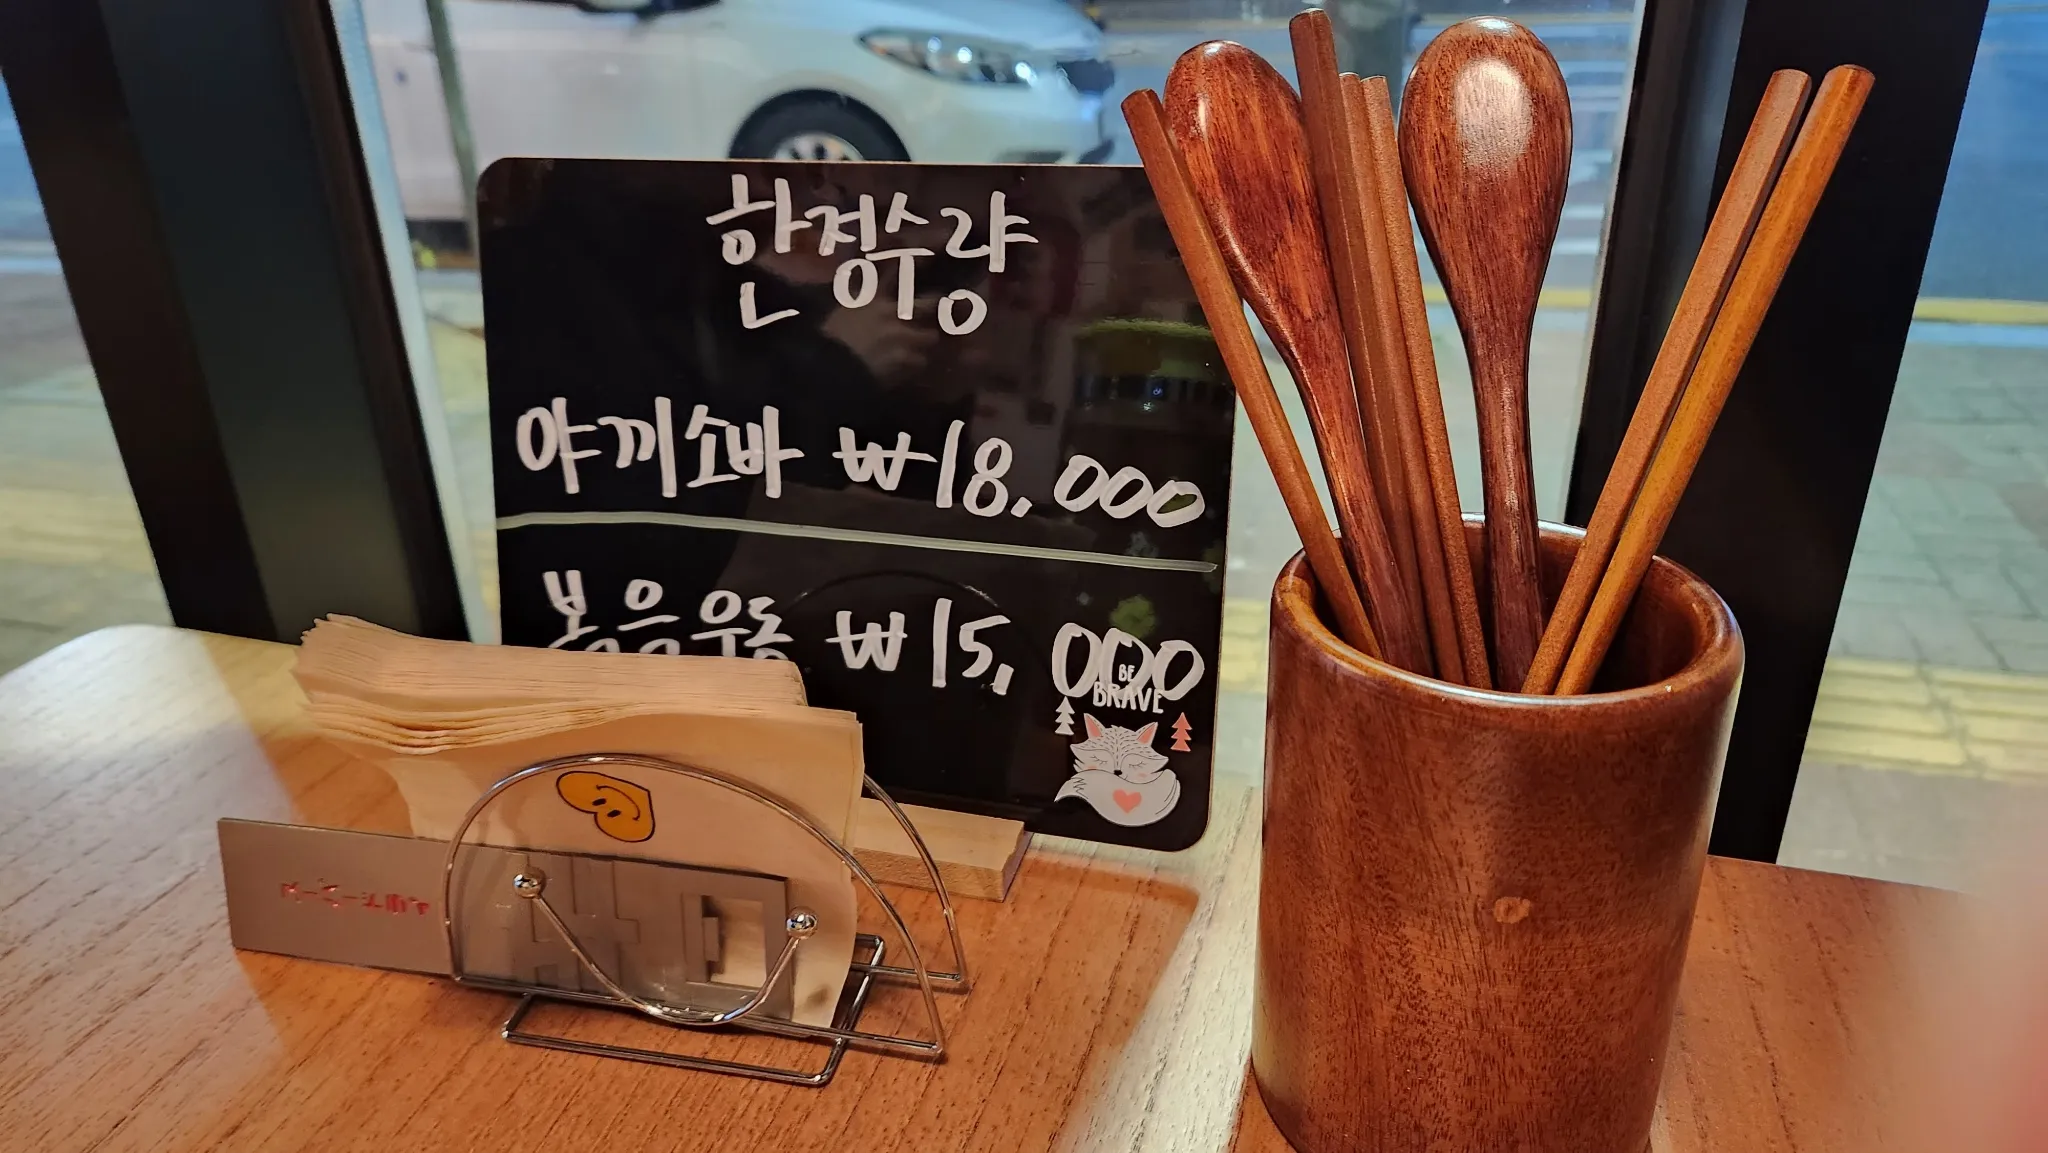 한정수량
야끼소바 ₩18,000
볶음우동 ₩15,000
BE
BRAVE